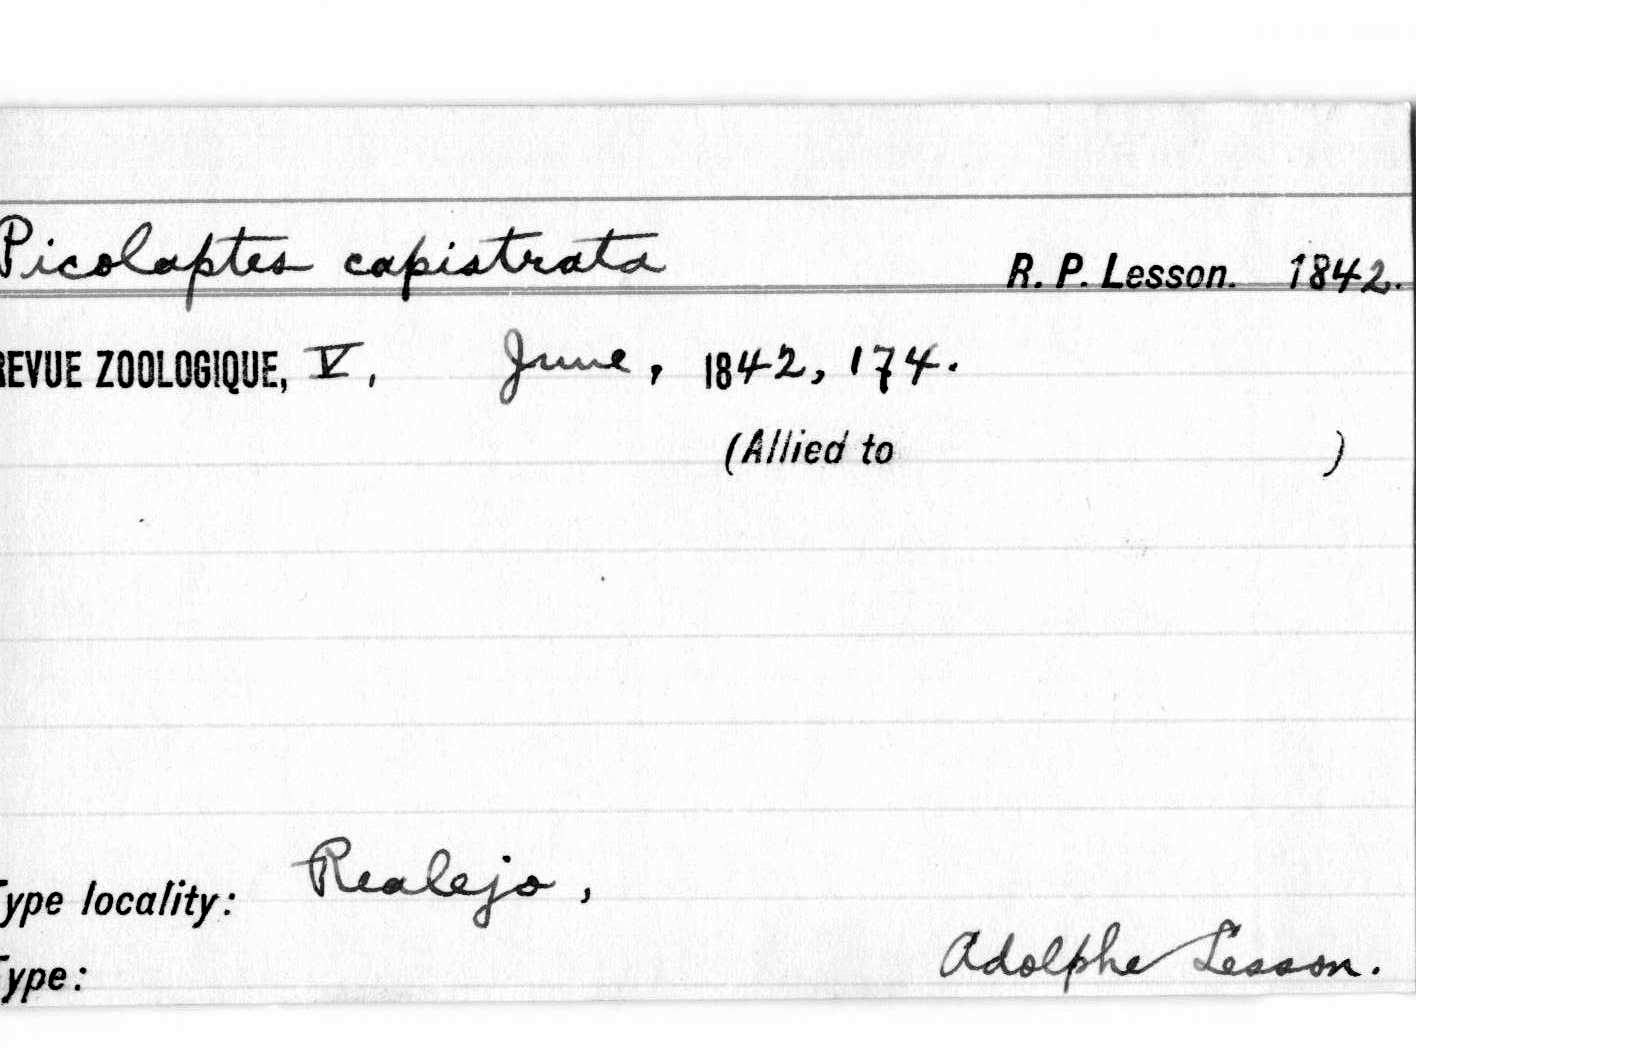 Picolaptes capistrata R. P. Lesson. 1842.
REVUE ZOOLOGIQUE, V, June, 1842, 174.
(Allied to )
Type locality: Realejo,
Adolphe Lesson.
Type: